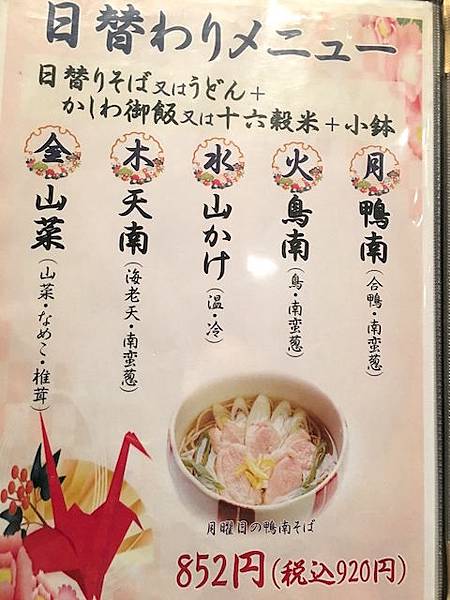 日替わりメニュー
日替りそば又はうどん+
かしわ御飯又は十六穀米+小鉢
月 鴨南(合鴨・南蛮葱)
火 鳥南(鳥・南蛮葱)
水 山かけ(温・冷)
木 天南(海老天・南蛮葱)
金 山菜(山菜・なめこ・椎茸)
月曜日の鴨南そば
852円(税込920円)